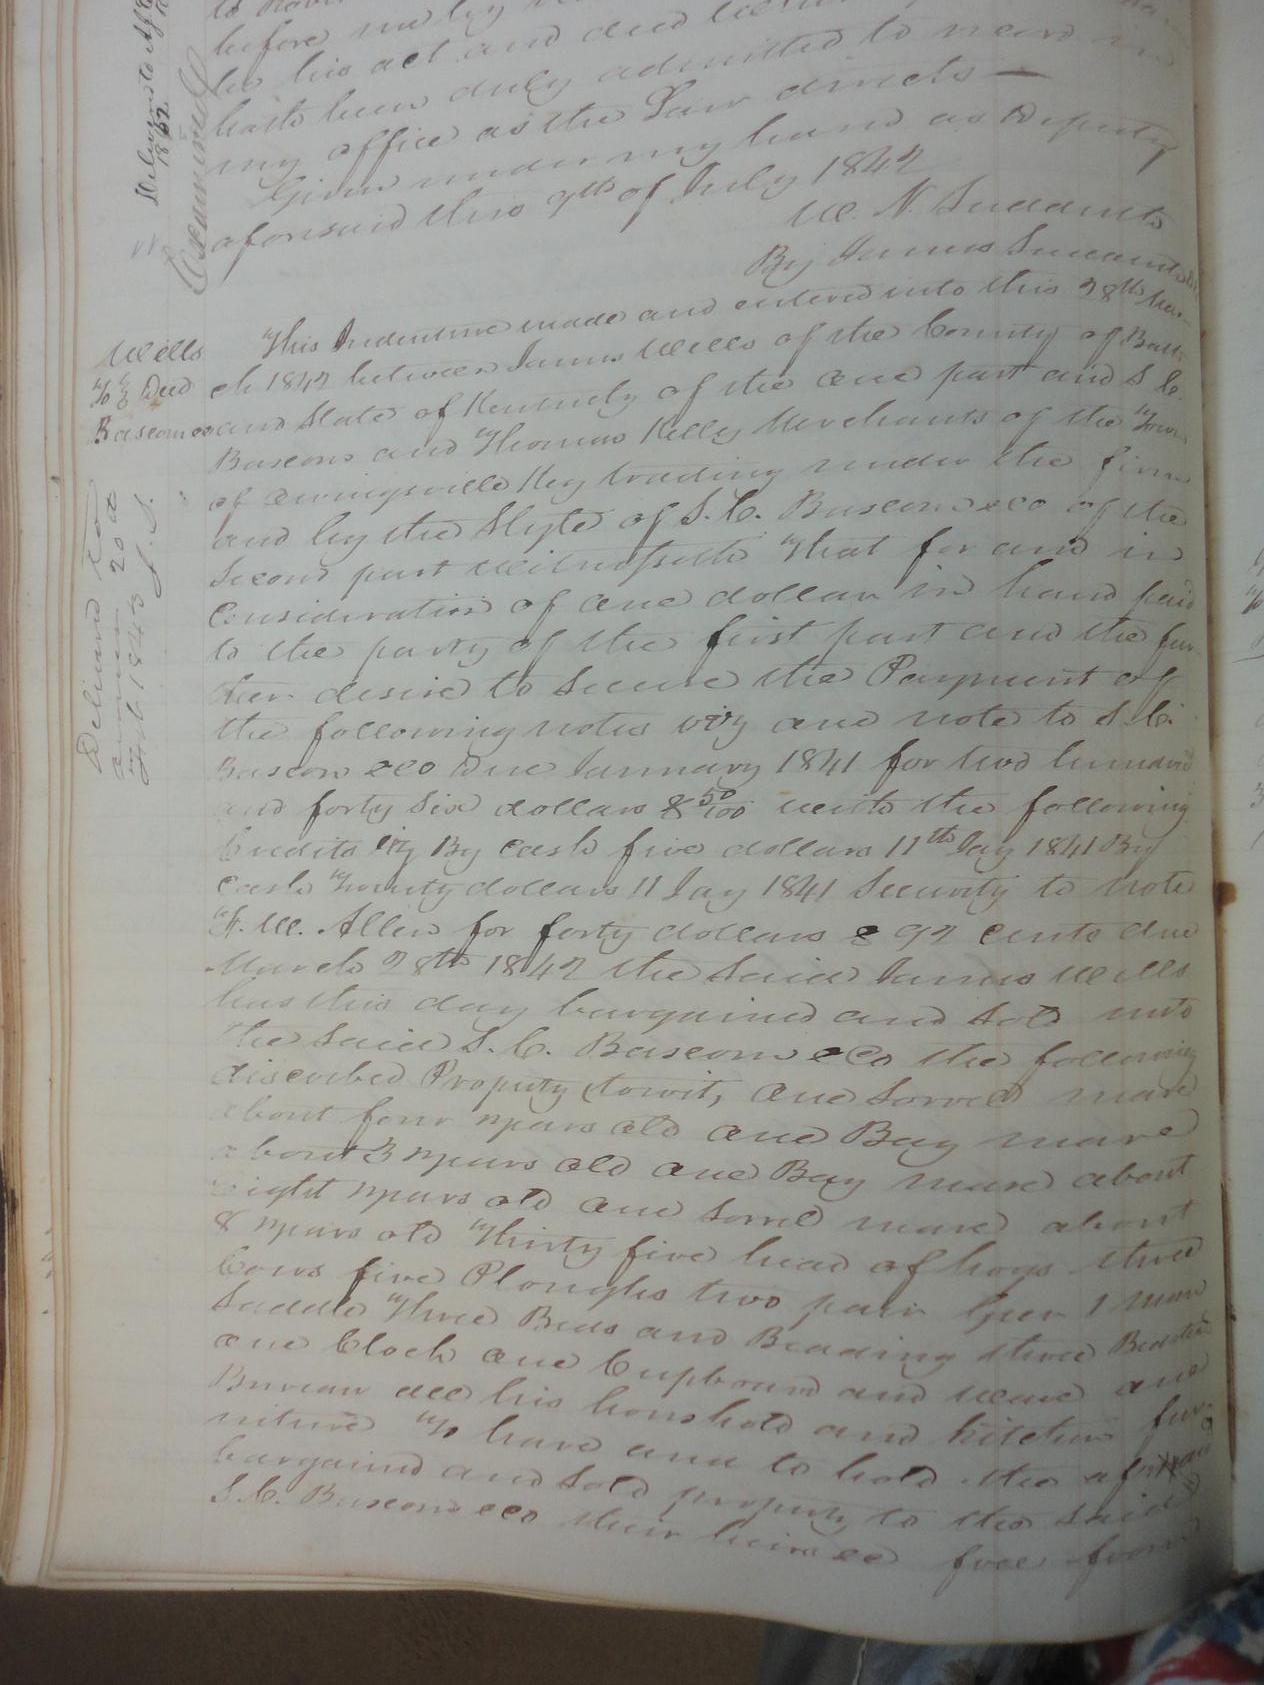 before me by
be his act and deed
hath been duly admitted to record in
my office as the Law directs —
Given under my hand as Deputy
aforesaid this 7th of July 1842
W. N. Sudduth
By James Sudduth
Examined
Delivered to
1852
Wells
To } Deed
Bascom &co
Delivered to
20th
Feb 1843
J. S.
This Indenture made and entered into this 28th Mar-
ch 1842 between James Wells of the County of Bath
and State of Kentucky of the one part and S. C.
Bascom and Thomas Kelly Merchants of the Town
of Owingsville Key trading under the firm
and by the Style of S. C. Bascom &co of the
Second part Witnesseth That for and in
Consideration of one dollar in hand paid
to the party of the first part and the fur-
ther desire to Secure the Payment of
the following notes viz and note to S. C.
Bascom &co Due January 1841 for two hundred
and forty Six dollars & 50/100 with the following
Credits viz By Cash five dollars 11th Jay 1841 By
Cash Twenty dollars 11 Jay 1841 Security to note
W. Allen for forty dollars & 92 cents due
March 28th 1842 the Said James Wells
has this day bargained and Sold unto
the Said S. C. Bascom &Co the following
discribed Property (towit, one Sorrel mare
about four years old one Bay mare
about 3 years old one Bay mare about
eight years old one Sorrel mare about
8 years old Thirty five head of hogs three
Cows five Ploughs two pair Geer 1 man
Saddle Three Beds and Beading three Bedsteads
one Clock one Cupboard and Ware one
Bureau all his houshold and kitchen fur-
niture To have and to hold the aforesaid
bargained and Sold property to the Said
S. C. Bascom &co their heirs &c free from